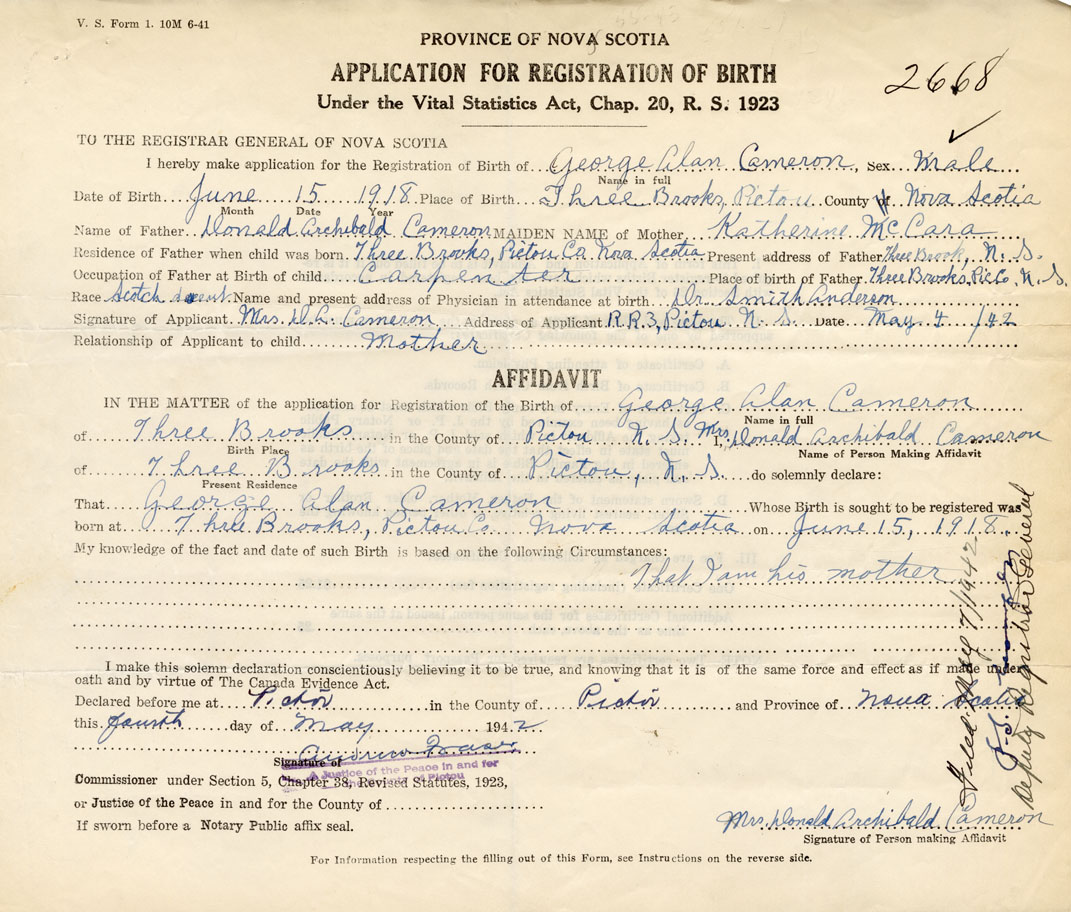 V. S. Form 1. 10M 6-41
PROVINCE OF NOVA SCOTIA
APPLICATION FOR REGISTRATION OF BIRTH
2668
Under the Vital Statistics Act, Chap. 20, R. S. 1923
TO THE REGISTRAR GENERAL OF NOVA SCOTIA
I hereby make application for the Registration of Birth of George Alan Cameron, Sex Male
Name in full
Date of Birth June 15 1918 Place of Birth Three Brooks, Pictou County of Nova Scotia
Month Date Year
Name of Father Donald Archibald Cameron MAIDEN NAME of Mother Katherine McCara
Residence of Father when child was born. Three Brooks, Pictou Co. Nova Scotia Present address of Father Three Brook, N. S.
Occupation of Father at Birth of child Carpenter Place of birth of Father Three Brooks, Pic Co. N. S.
Race Scotch Name and present address of Physician in attendance at birth Dr Smith Anderson
Signature of Applicant Mrs. D. A. Cameron Address of Applicant R. R. 3, Pictou N. S. Date May 4 /42
Relationship of Applicant to child Mother
AFFIDAVIT
IN THE MATTER of the application for Registration of the Birth of George Alan Cameron
Name in full
of Three Brooks in the County of Pictou N. S. I, Mrs. Donald Archibald Cameron
Birth Place Name of Person Making Affidavit
of Three Brooks in the County of Pictou, N. S. do solemnly declare:
Present Residence
That George Alan Cameron Whose Birth is sought to be registered was
born at Three Brooks, Pictou Co. Nova Scotia on June 15, 1918
My knowledge of the fact and date of such Birth is based on the following Circumstances:
That I am his mother
I make this solemn declaration conscientiously believing it to be true, and knowing that it is of the same force and effect as if made under
oath and by virtue of The Canada Evidence Act.
Declared before me at Pictou in the County of Pictou and Province of Nova Scotia
this fourth day of May 1942
Andrew Fraser
Signature of
A Justice of the Peace in and for
the County of Pictou
Commissioner under Section 5, Chapter 38, Revised Statutes, 1923,
or Justice of the Peace in and for the County of
If sworn before a Notary Public affix seal.
Mrs. Donald Archibald Cameron
Signature of Person making Affidavit
For Information respecting the filling out of this Form, see Instructions on the reverse side.
Filed May 7/1942
Deputy Registrar General